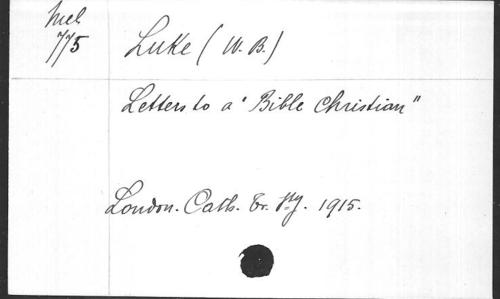 Mel
775
Luke (W. B.)
Letters to a "Bible Christian"
London. Cath. Tr. Sty. 1915.